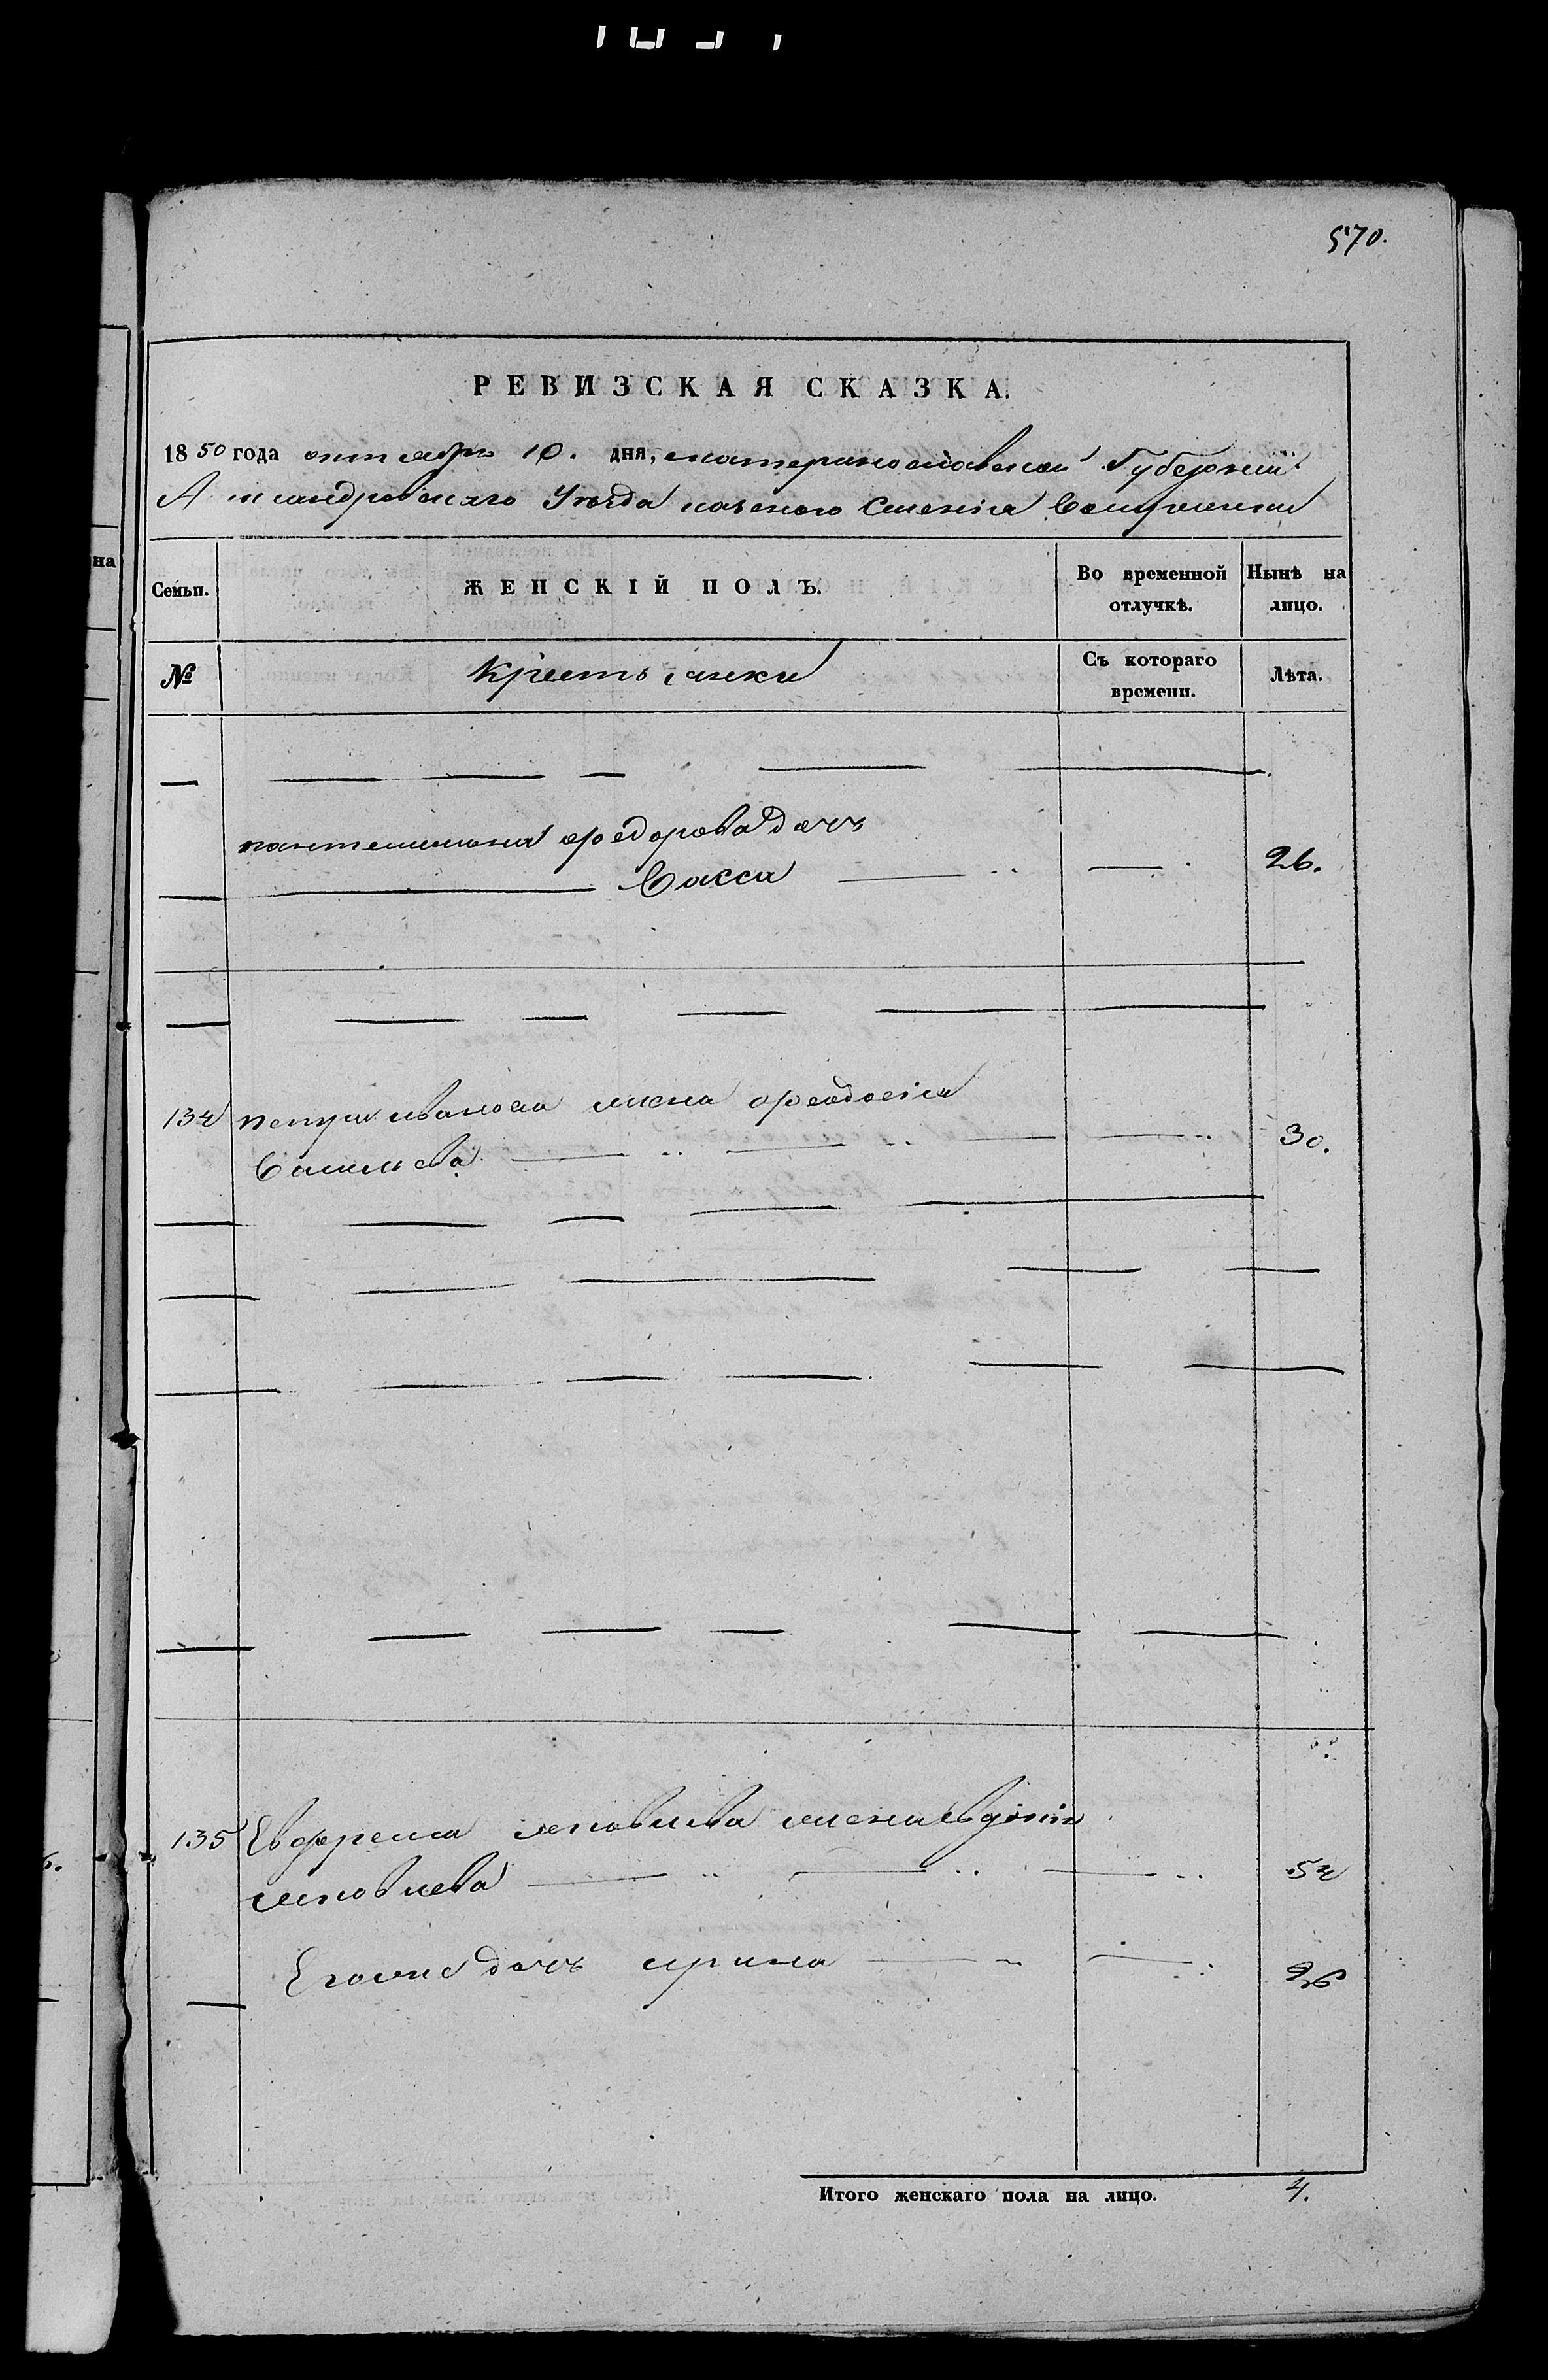 570.
РЕВИЗСКАЯ СКАЗКА.
1850 года октября 10. дня, Екатеринославской Губерніи
Александровскаго Уезда казеного Селенія
на
Семьи. ЖЕНСКІЙ ПОЛЪ. Во временной отлучкѣ. Нынѣ на лицо.
№ Крестьянки Съ котораго времени. Лѣта.
пантелимона федорова дочь
Васса 26.
134 петра иванова жена феодосія
Васильева 30.
135 Евфрема яковлева жена евдокія
яковлева 54
Егоже дочь ирина 26
Итого женскаго пола на лицо. 4.